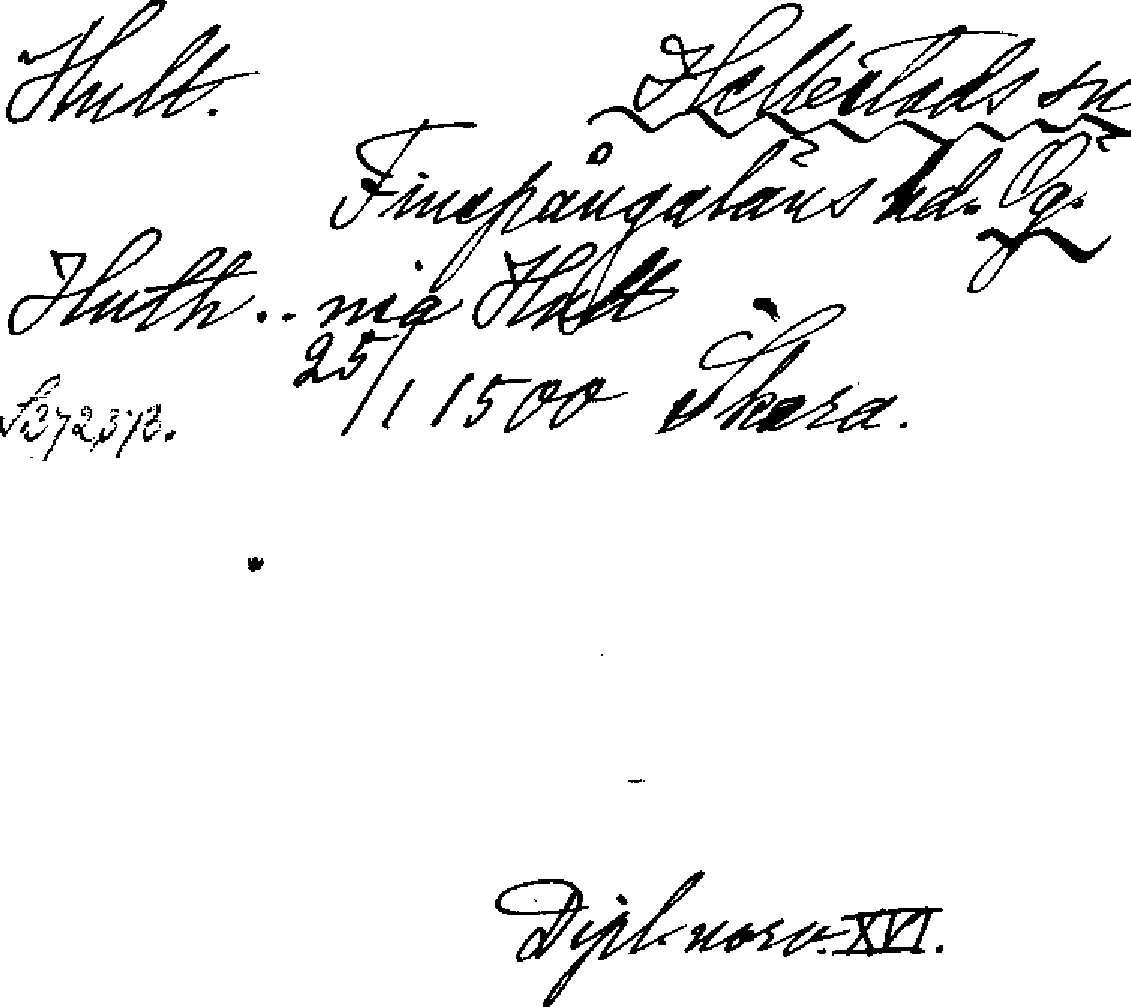 Hult.
Hellestads sn
Finspångaläns hd. Ög.
Huth .. må Hult
25/1 1500 Skara.
S. 372, 378.
Dipl. norv. XVI.